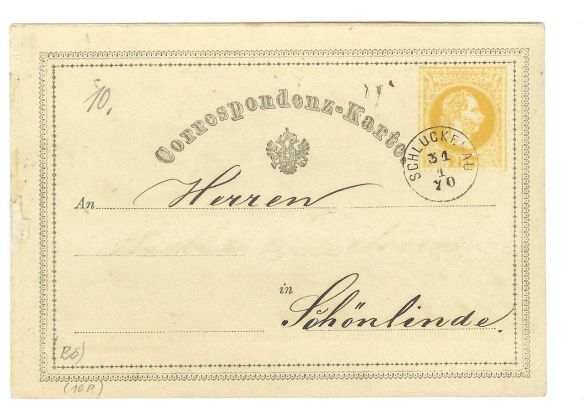 10.
Correspondenz-Karte.
SCHLUCKENAU
31
1
70
An Herren
in
Schönlinde.
(Bö)
(10P)